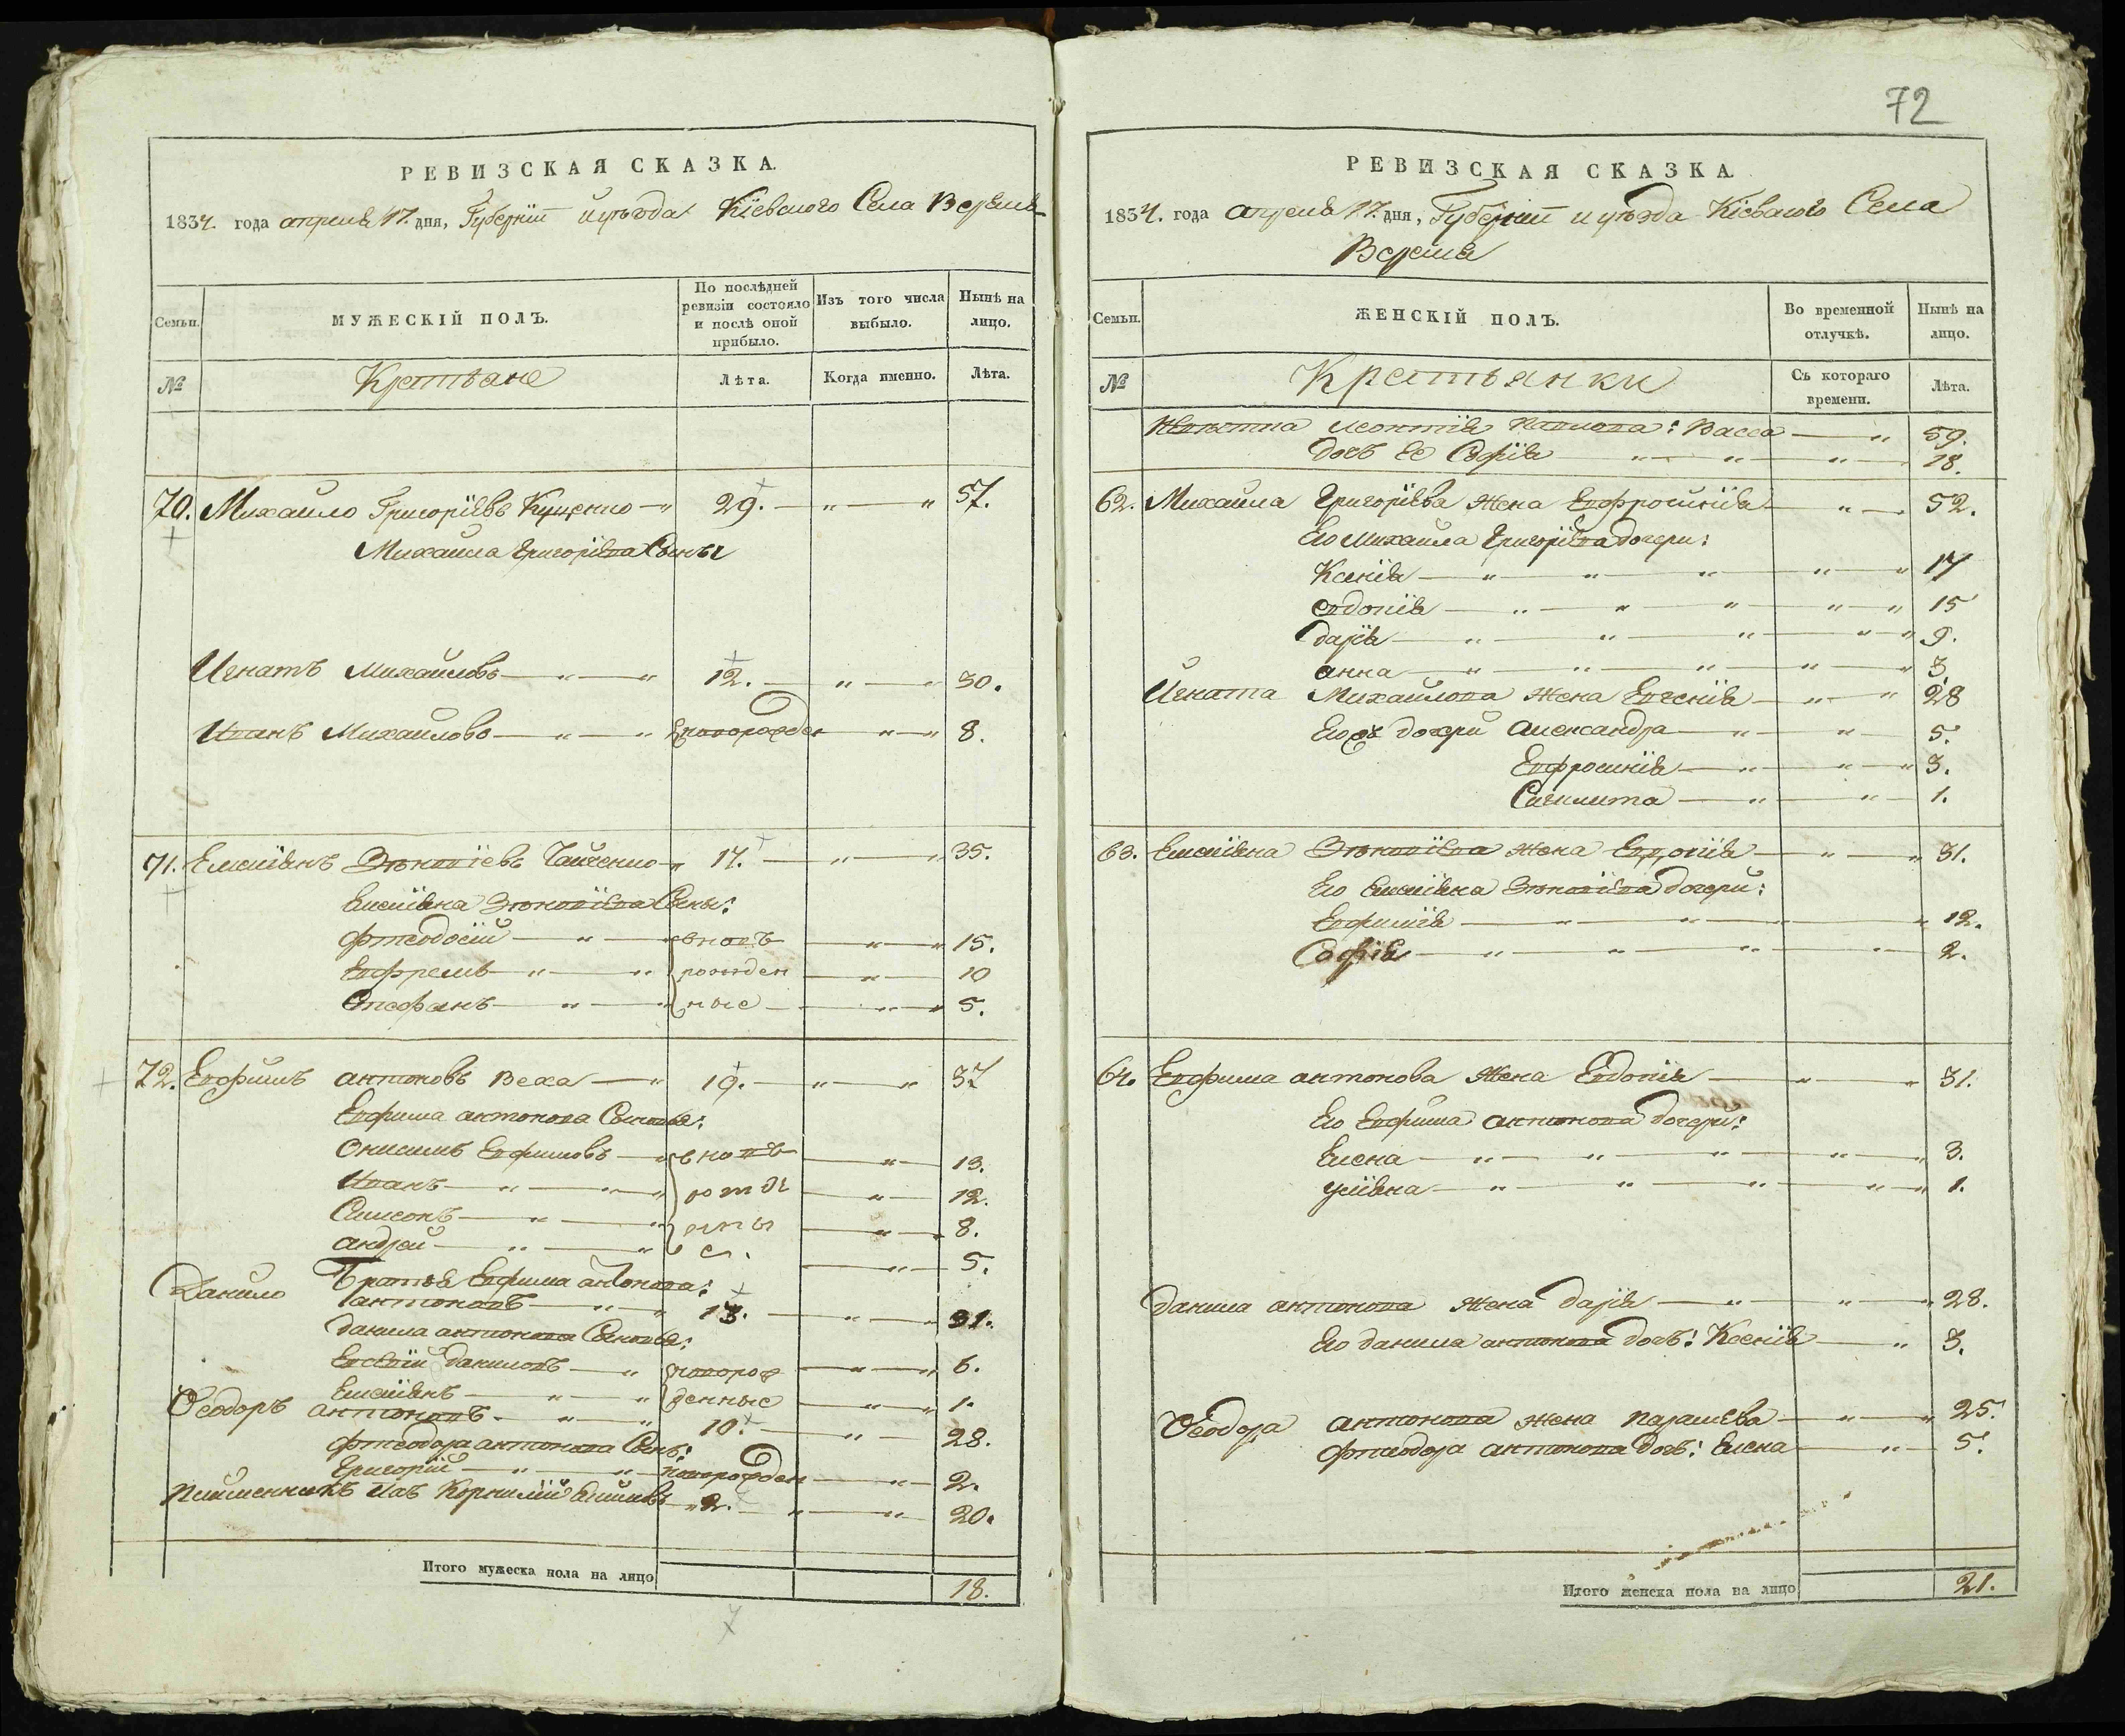 РЕВИЗСКАЯ СКАЗКА.
1834. года апреля 17. дня, Губернiи и уѣзда Кiевского Села Веремя
Семьи.
МУЖЕСКIЙ ПОЛЪ.
По послѣдней ревизiи состояло и послѣ оной прибыло.
Изъ того числа выбыло.
Нынѣ на лицо.
№
Крестьане
Лѣта.
Когда именно.
Лѣта.
70. Михайло Григорiевъ Куценко 29. 57.
Михаила Григорiева Сыны
Игнатъ Михайловъ 12. 30.
Иванъ Михайловъ новорожден 8.
71. Емелiянъ Зѣновiевъ 17. 35.
Емелiяна Зѣновiева Сыны:
Фтеодосiй вновь 15.
Евфремъ рожден 10
Стефанъ ные 5.
72. Евфимъ антоновъ Веха 19. 37
Евфима антонова Сыновья:
Онисимъ Евфимовъ вновь 13.
Иванъ рожд 12.
Симеонъ енны 8.
андрей е. 5.
Братья Евфима антонова:
Данило антоновъ 13. 31.
Данила антонова Сыновья:
Евсевiй Даниловъ новорож 6.
Емелiянъ денные 1.
Ѳеодоръ антоновъ 10. 28.
Фтеодора антонова Сынъ:
Григорiй новорожден 2.
Корнилiй 2. 20.
Итого мужеска пола на лицо 18.
72
РЕВИЗСКАЯ СКАЗКА.
1834. года апреля 17. дня, Губернiи и уѣзда Кiевского Села
Веремя
Семьи.
ЖЕНСКIЙ ПОЛЪ.
Во временной отлучкѣ.
Нынѣ на лицо.
№
Крестьянки
Съ котораго времени.
Лѣта.
Леонтiя Павлова: Васса 59.
дочь Ее Софiя 18.
62. Михаила Григорiева жена Евфросинiя 52.
Его Михаила Григорiева дочери:
Ксенiя 17
евдокiя 15
дарiя 9.
анна 3.
Игната Михайлова жена Евгенiя 28
Его дочери александра 5.
Евфросинiя 3.
1.
63. Емелiяна Зѣновiева жена Евдокiя 31.
Его Емелiяна Зѣновiева дочери:
Евфимiя 12.
Софiя 2.
64. Евфима антонова жена Евдокiя 31.
Его Евфима антонова дочери:
Елена 3.
улiяна 1.
Данила антонова жена дарiя 28.
Его данила антонова дочь: Ксенiя 3.
Ѳеодора антонова жена параскева 25.
Фтеодора антонова дочь: Елена 5.
Итого женска пола на лицо 21.